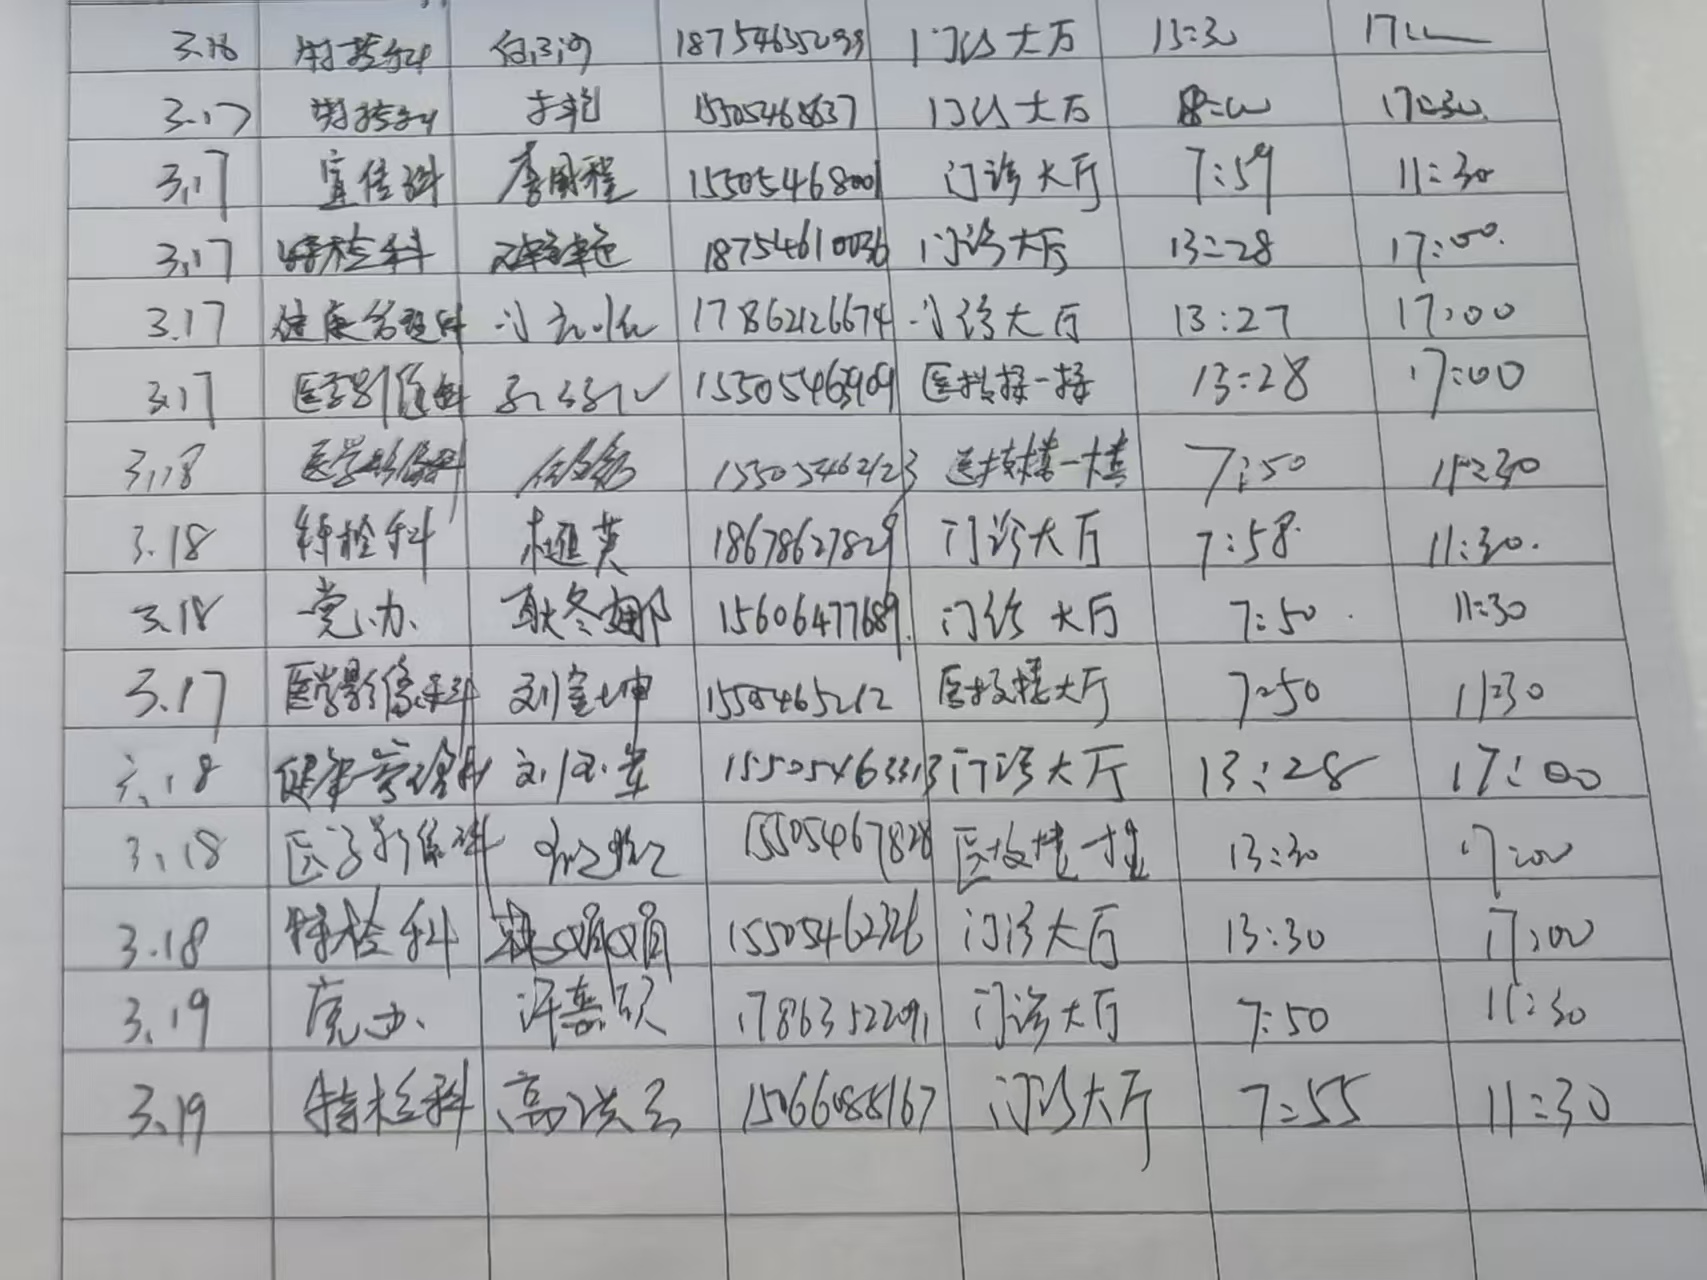 3.18 特检科 门诊大厅 13:30
3.17 特检科 15505468637 门诊大厅 8:00 17:30
3.17 宣传科 李国程 15505468001 门诊大厅 7:59 11:30
3.17 特检科 18754610036 门诊大厅 13:28 17:00
3.17 健康管理科 17862126674 门诊大厅 13:27 17:00
3.17 医学影像科 医技楼一楼 13:28 17:00
3.18 医学影像科 15505462123 医技楼一楼 7:50 11:30
3.18 特检科 18678627829 门诊大厅 7:58 11:30
3.18 党办 耿冬娜 15606477689 门诊大厅 7:50 11:30
3.17 医学影像科 刘 坤 1550465212 医技楼大厅 7:50 11:30
3.18 健康管理科 15505463313 门诊大厅 13:28 17:00
3.18 医学影像科 15505467828 医技楼一楼 13:30 17:00
3.18 特检科 15505462326 门诊大厅 13:30 17:00
3.19 党办 许 硕 17863522091 门诊大厅 7:50 11:30
3.19 特检科 高洪云 15066088167 门诊大厅 7:55 11:30